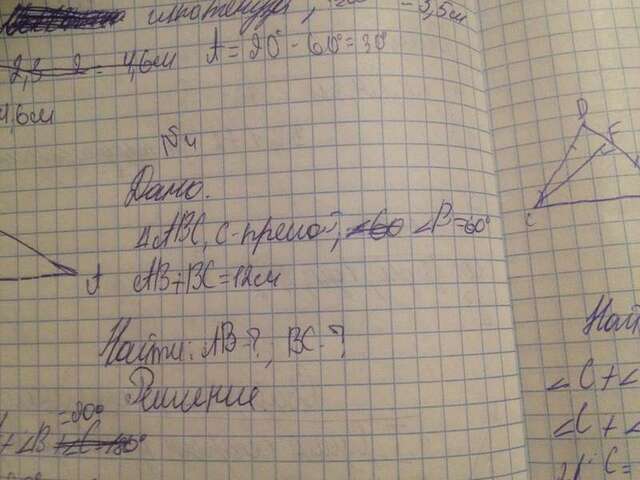 гипотенузы,
2,3 · 2 = 4,6см A = 90° - 60° = 30°
4,6м
№4
Дано.
ΔABC, C-прямой, ∠B=60°
AB+BC=12см
Найти: AB-?, BC-?
Решение.
=90°
+∠B+∠C=180°
A
D
F
C
Най
∠C+∠
∠C+∠